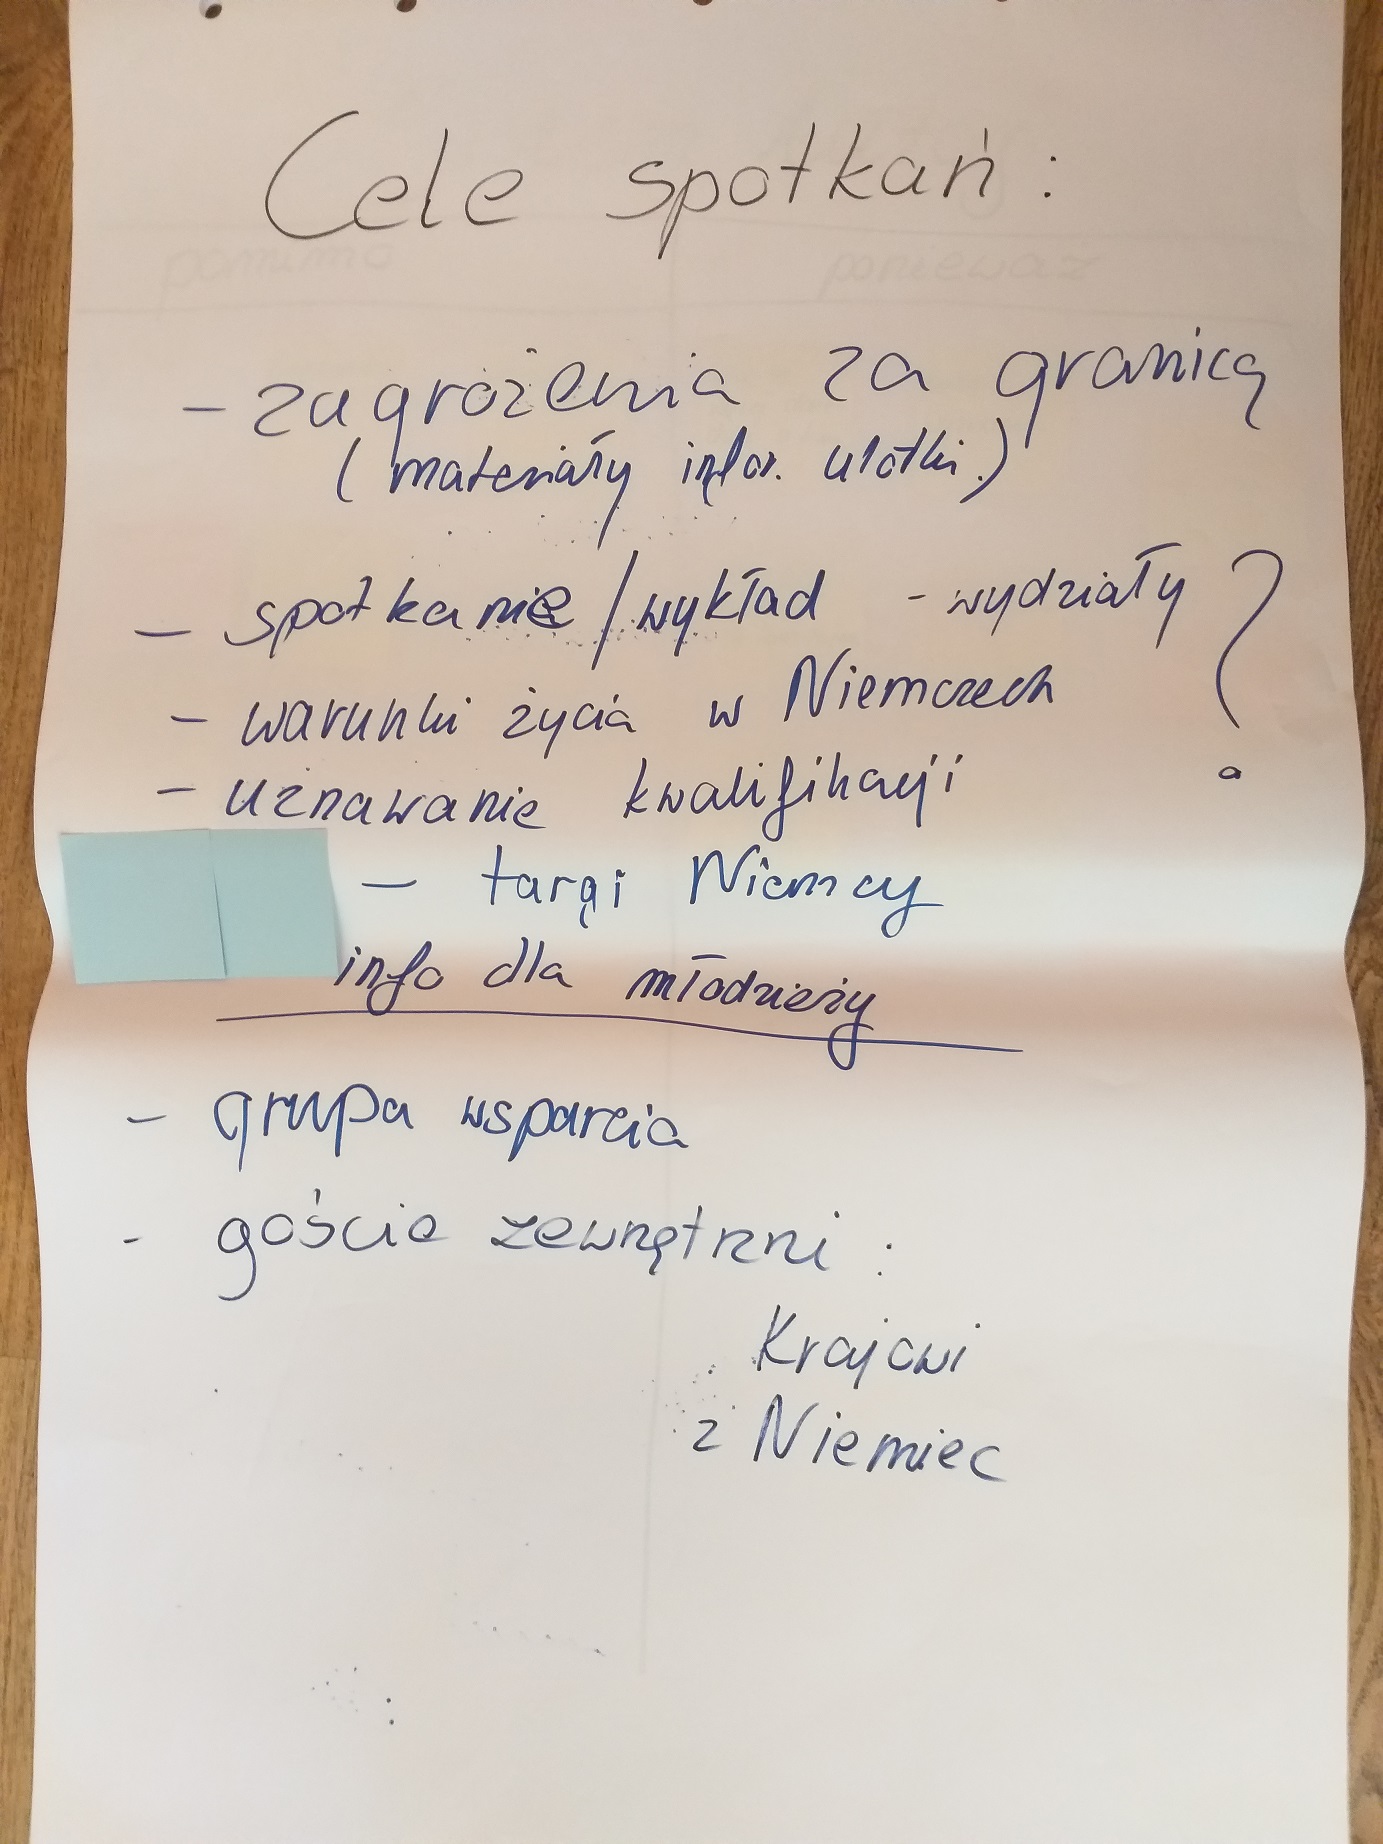 Cele spotkań:
- zagrożenia za granicą
(materiały infor. ulotki.)
- spotkanie/wykład - wydziały ?
- warunki życia w Niemczech
- uznawanie kwalifikacji
- targi Niemcy
info dla młodzieży
- grupa wsparcia
- goście zewnętrzni:
Krajowi
z Niemiec